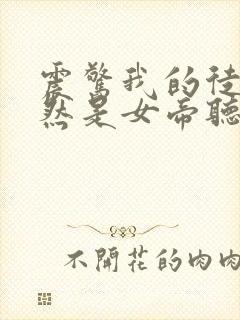 震驚我的徒
然是女帝聽
不開花的肉肉